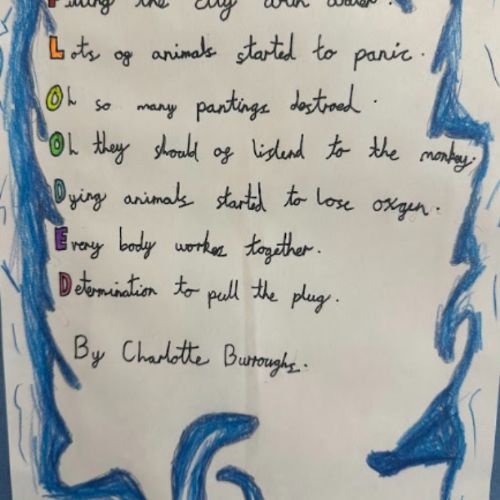 Filling the city with water.
Lots og animals started to panic.
Oh so many pantings destroed.
Oh they should og lislend to the monkey.
Dying animals started to lose oxgen.
Every body workes together.
Determination to pull the plug.
By Charlotte Burroughs.